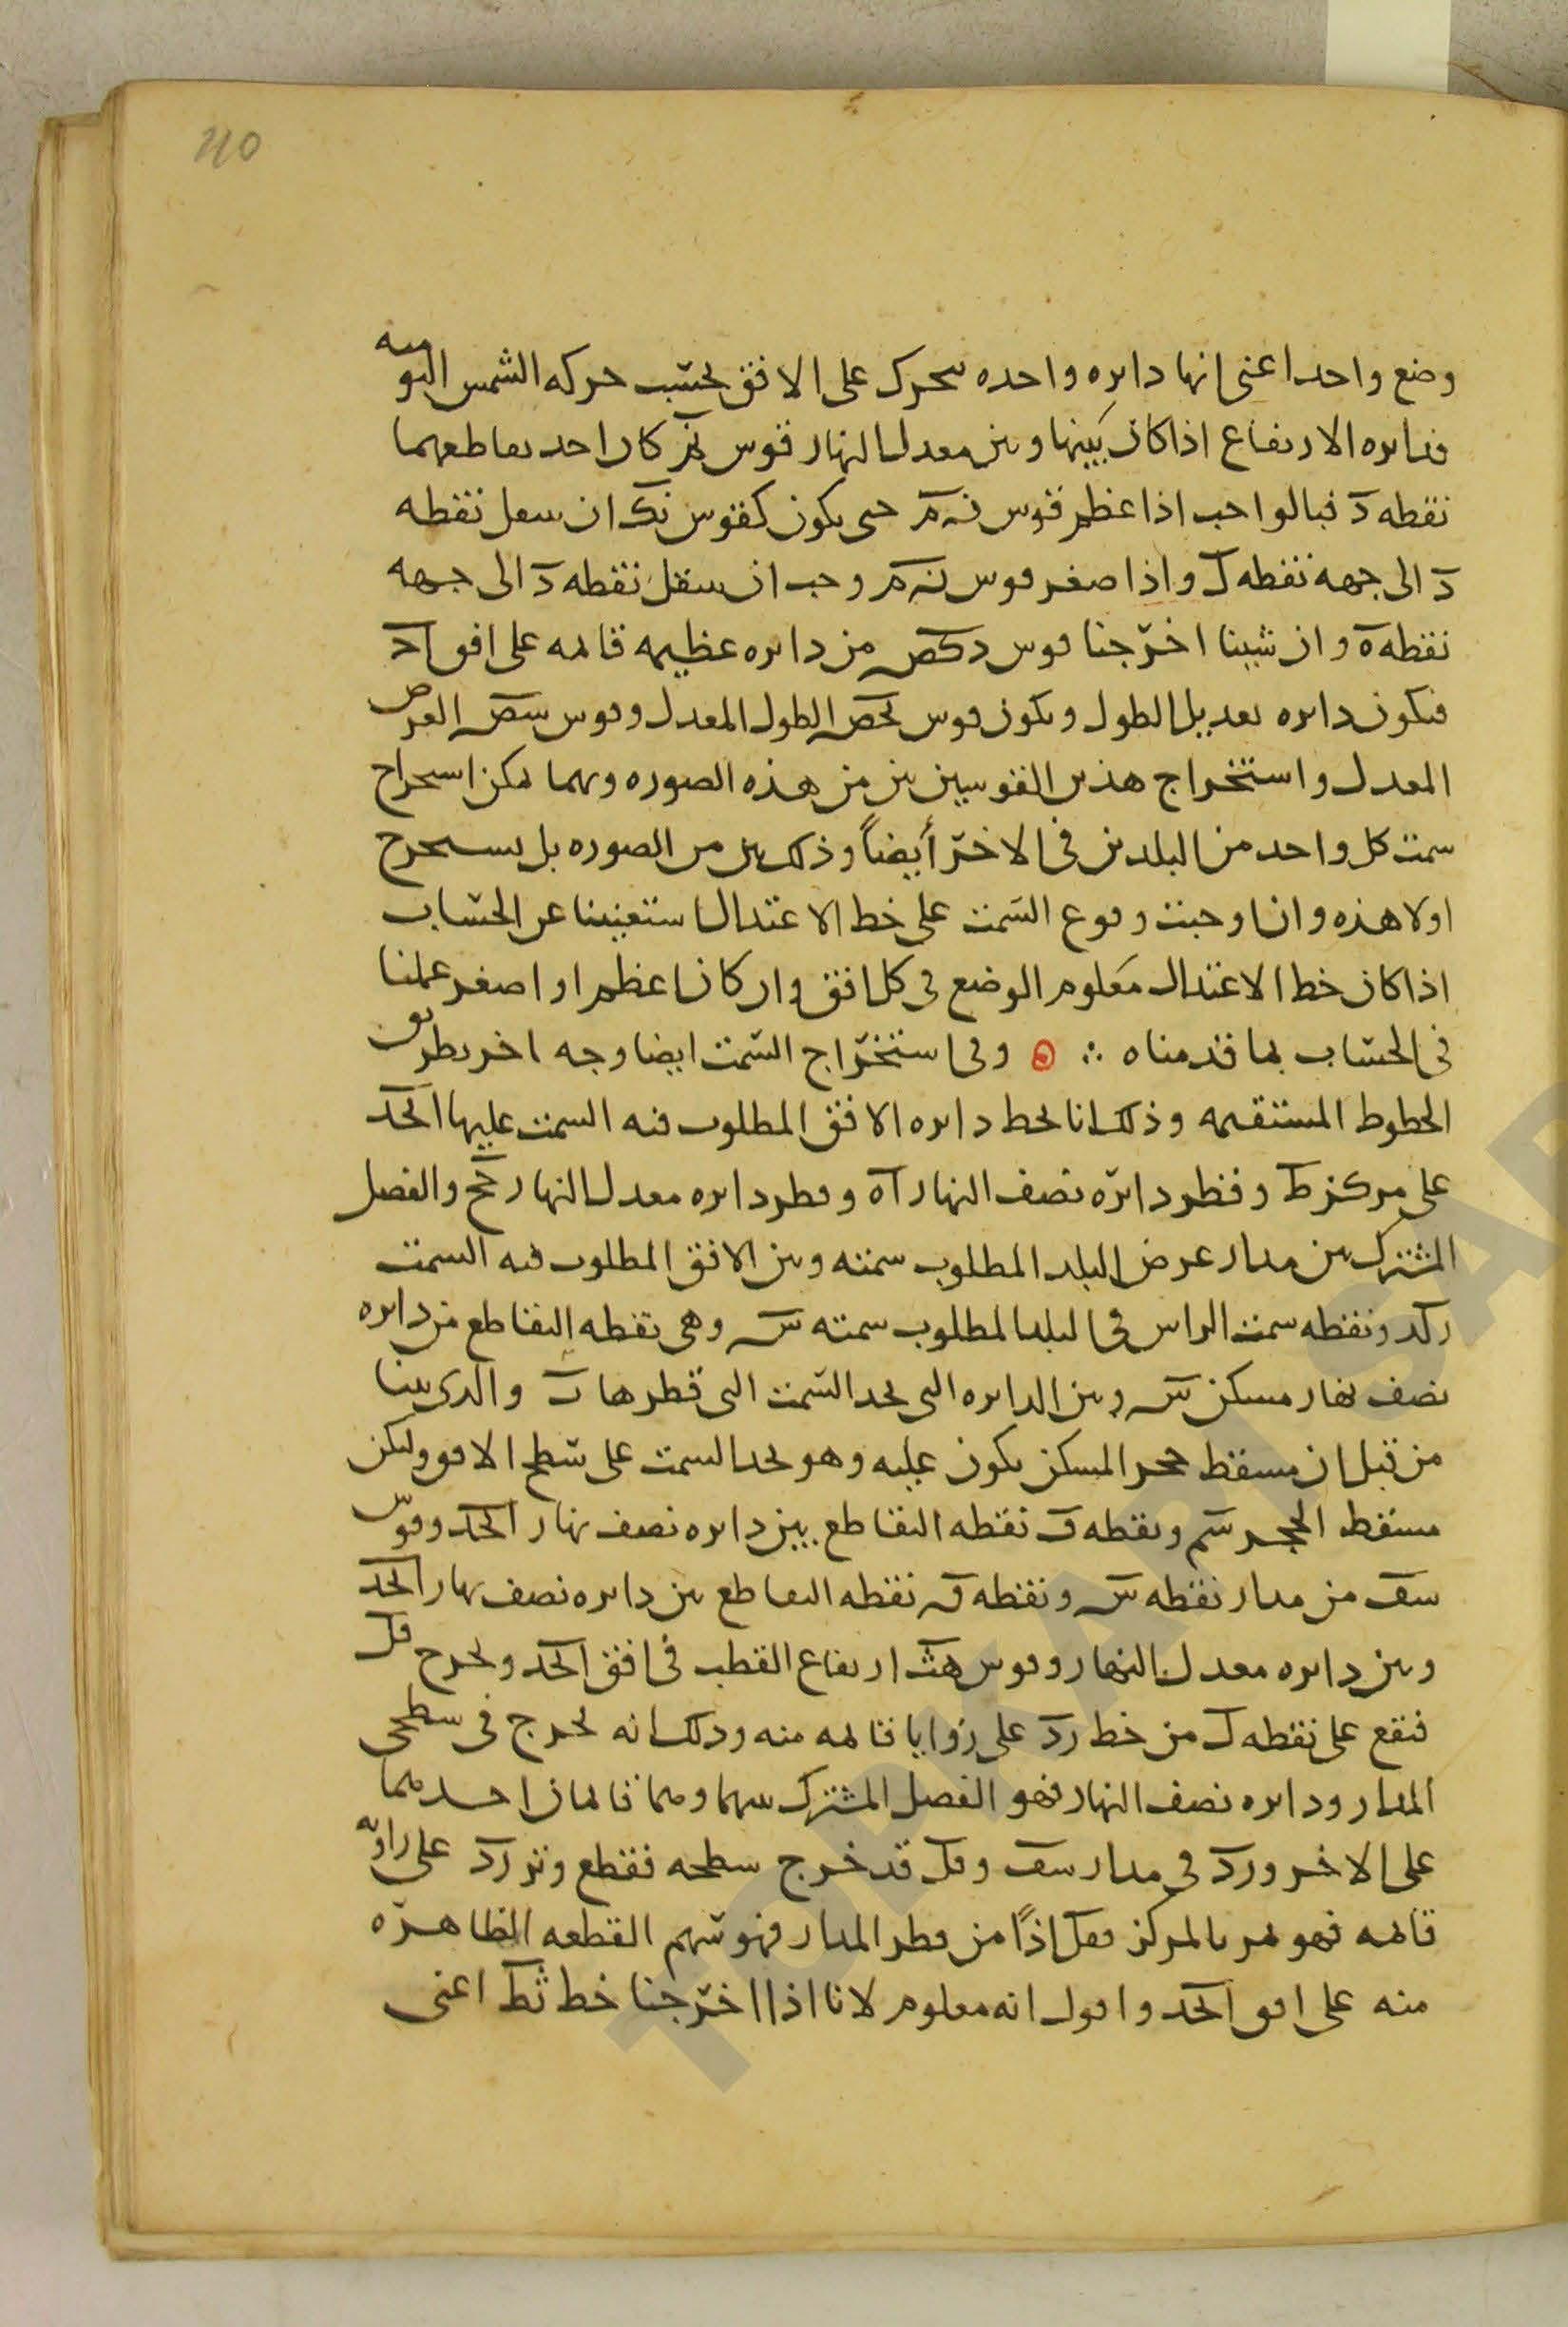 210
وضع واحد اعنى انها دايره واحده يتحرك على الافق بحسب حركه الشمس اليوميه
فدايره الارتفاع اذا كان بينها وبين معدل النهار قوس نم كان احد تقاطعهما
نقطه د فبالواجب اذا عظم قوس نم حتى يكون كقوس نك ان ينتقل نقطه
د الى جهه نقطه ل واذا صغر قوس نم وجب ان ينتقل نقطه د الى جهه
نقطه ه وان شينا اخرجنا قوس دكص من دايره عظيمه قايمه على افق اد
فيكون دايره تعديل الطول ويكون قوس لحص الطول المعدل وقوس سص العرض
المعدل واستخراج هذين القوسين بين من هذه الصوره وبهما يمكن استخراج
سمت كل واحد من البلدين فى الاخر أيضاً وذلك بين من الصوره بل يستخرج
اولا هذه وان اوجبت وقوع السمت على خط الاعتدال استغنينا عن الحساب
اذا كان خط الاعتدال معلوم الوضع فى كل افق وان كان اعظم او اصغر عملنا
فى الحساب بما قدمناه ∴ وفى استخراج السمت ايضا وجه اخر بطريق
الخطوط المستقيمه وذلك انا نخط دايره الافق المطلوب فيه السمت عليها الحد
على مركز ط وقطر دايره نصف النهار اه وقطر دايره معدل النهار حح والفصل
المشترك بين مدار عرض البلد المطلوب سمته وبين الافق المطلوب فيه السمت
رلد ونقطه سمت الراس فى البلد المطلوب سمته س وهى نقطه التقاطع من دايره
نصف نهار مسكن س وبين الدايره التى تحد السمت التى قطرها ب والذى بينا
من قبل ان مسقط حجر المسكن يكون عليه وهو يحد السمت على سطح الافق وليكن
مسقط الحجر سم ونقطه ف نقطه التقاطع بين دايره نصف نهار الحد وقوس
سف من مدار نقطه س ونقطه ق نقطه التقاطع بين دايره نصف نهار الحد
وبين دايره معدل النهار وقوس هث ارتفاع القطب فى افق الحد ونخرج فل
فتقع على نقطه ل من خط رد على زوايا قايمه منه وذلك انه يخرج فى سطحى
المدار ودايره نصف النهار فهو الفصل المشترك بينهما وهما قايمان احدهما
على الاخر ورد فى مدار سف وفل قد خرج سطحه فقطع وتر رد على زاويه
قايمه فهو يمر بالمركز ففل اذًا من قطر المدار فهو سهم القطعه الظاهره
منه على افق الحد واقول انه معلوم لانا اذا اخرجنا خط ثط اعنى